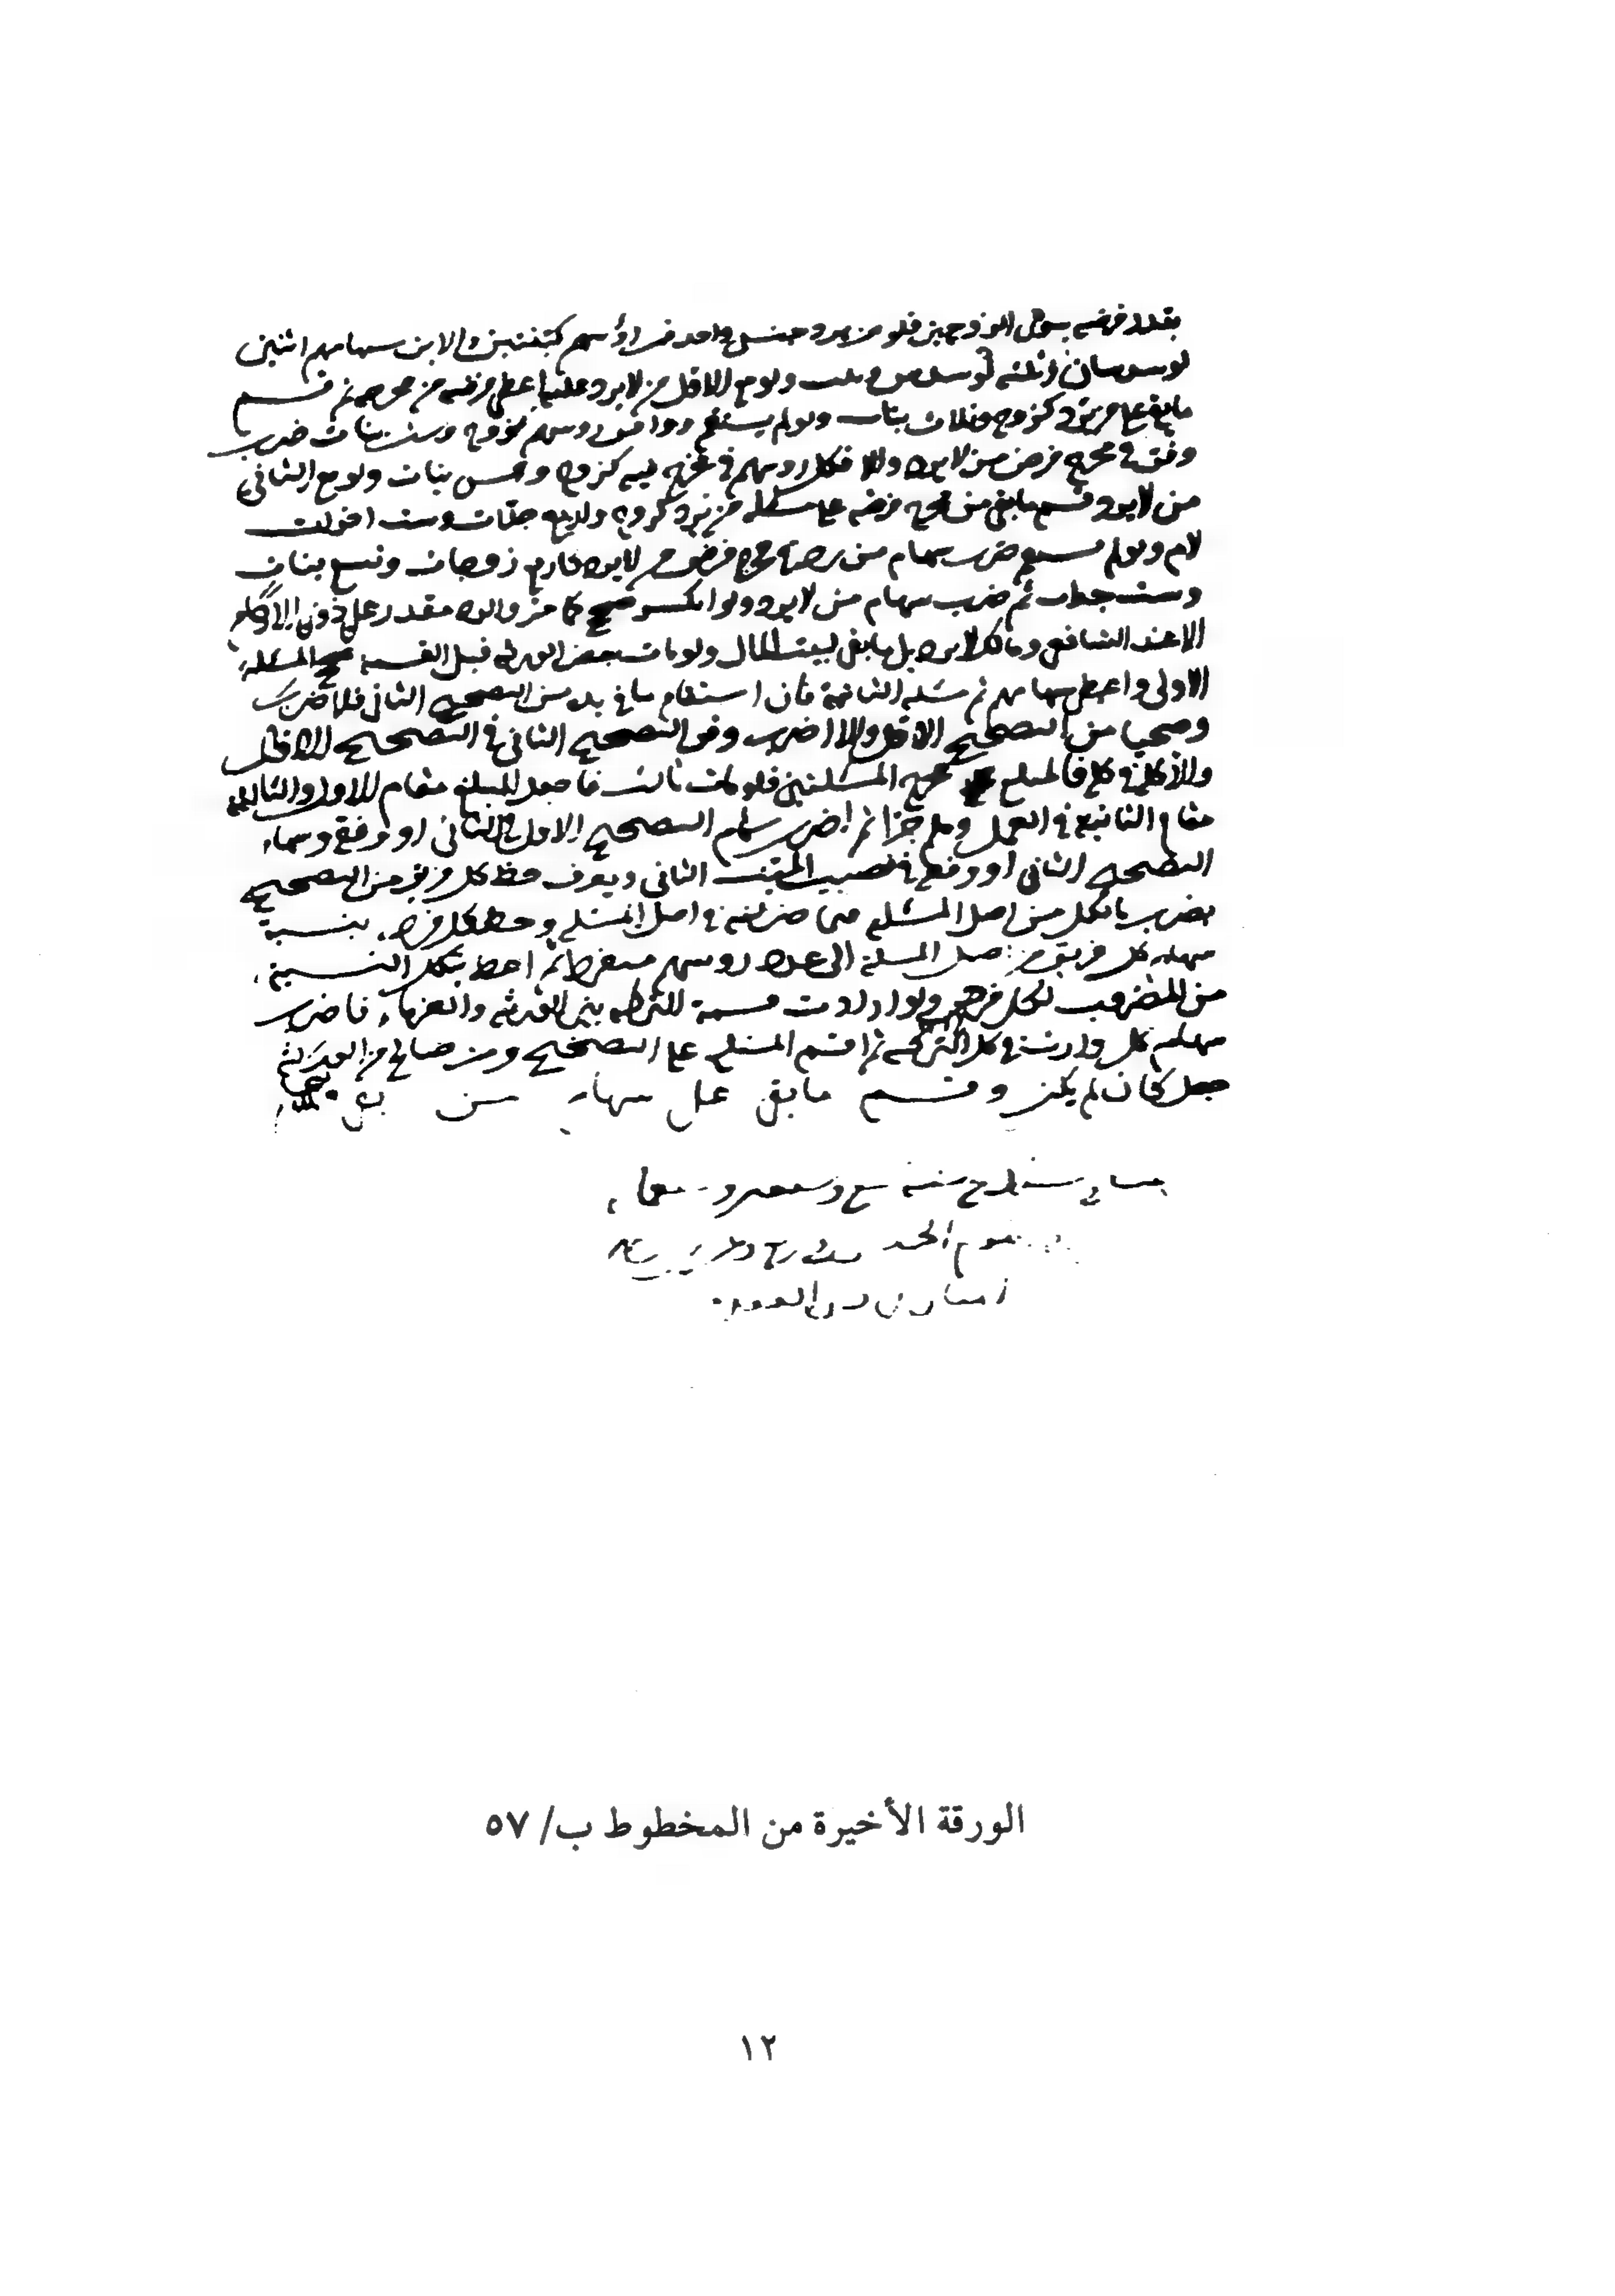 بقدر فرضه سوى الزوجين فلو من يرد جنس واحد فمن رؤسهم كبنتين والا من سهامهم اثنين
لو سدسان وثلثه لو سدس وثلث ولو مع الاقل من لا يرد عليه اعطى فرضه من مخرجه ثم قسم
مابقى على من يرد كزوج وثلاث بنات ولو لم يستقم ووافق رؤسهم كزوج وست بنات ضرب
وفق في مخرج فرض من لا يرد والا فكل رؤسهم في مخرجه كزوج وخمس بنات ولو مع الثاني
من لا يرد قسم مابقى من مخرج فرضه على مسئلة من يرد كزوجة واربع جدات وست اخوات
لام ولو لم يستقم ضرب سهام من يرد في مخرج فرض من لا يرد كاربع زوجات وتسع بنات
وست جدات ثم ضرب سهام من لا يرد ولو انكسر صحح كما مر والرد مقدر على ذوي الارحام
الا عند الشافعي ومالك لا يرد بل مابقى لبيت المال ولو مات بعض الورثه قبل القسمة صحح المسئلة
الاولى واعط سهامهم ثم مسئلة الثانية فان استقام ما في يده من التصحيح الثاني فلا ضرب
وصحتا من التصحيح الاول والا اضرب وفق التصحيح الثاني في التصحيح الاول
والا كله في كله فالمبلغ مخرج المسئلتين فلو مات ثالث فاجعل المبلغ مقام الاولى والثالثة
مقام الثانية في العمل وهلم جرا ثم اضرب سهام التصحيح الاول في الثاني او وفقه وسهام
التصحيح الثاني او وفقه في نصيب الميت الثاني ويعرف حظ كل فريق من التصحيح
بضرب مالكل من اصل المسئلة فيما ضربته في اصل المسئلة وحظ كل فرد بنسبة
سهام كل فريق من اصل المسئلة الى عدد رؤسهم مفردا ثم اعط بتلك النسبة
من المضروب لكل فرد ولو اردت قسمة التركة بين الورثة والغرماء فاضرب
سهام كل وارث في كل التركة ثم اقسم المبلغ على التصحيح ومن صالح من الورثة
جعل كان لم يكن وقسم مابقى على سهام من بقى
الورقة الأخيرة من المخطوط ب/ ٥٧
١٢